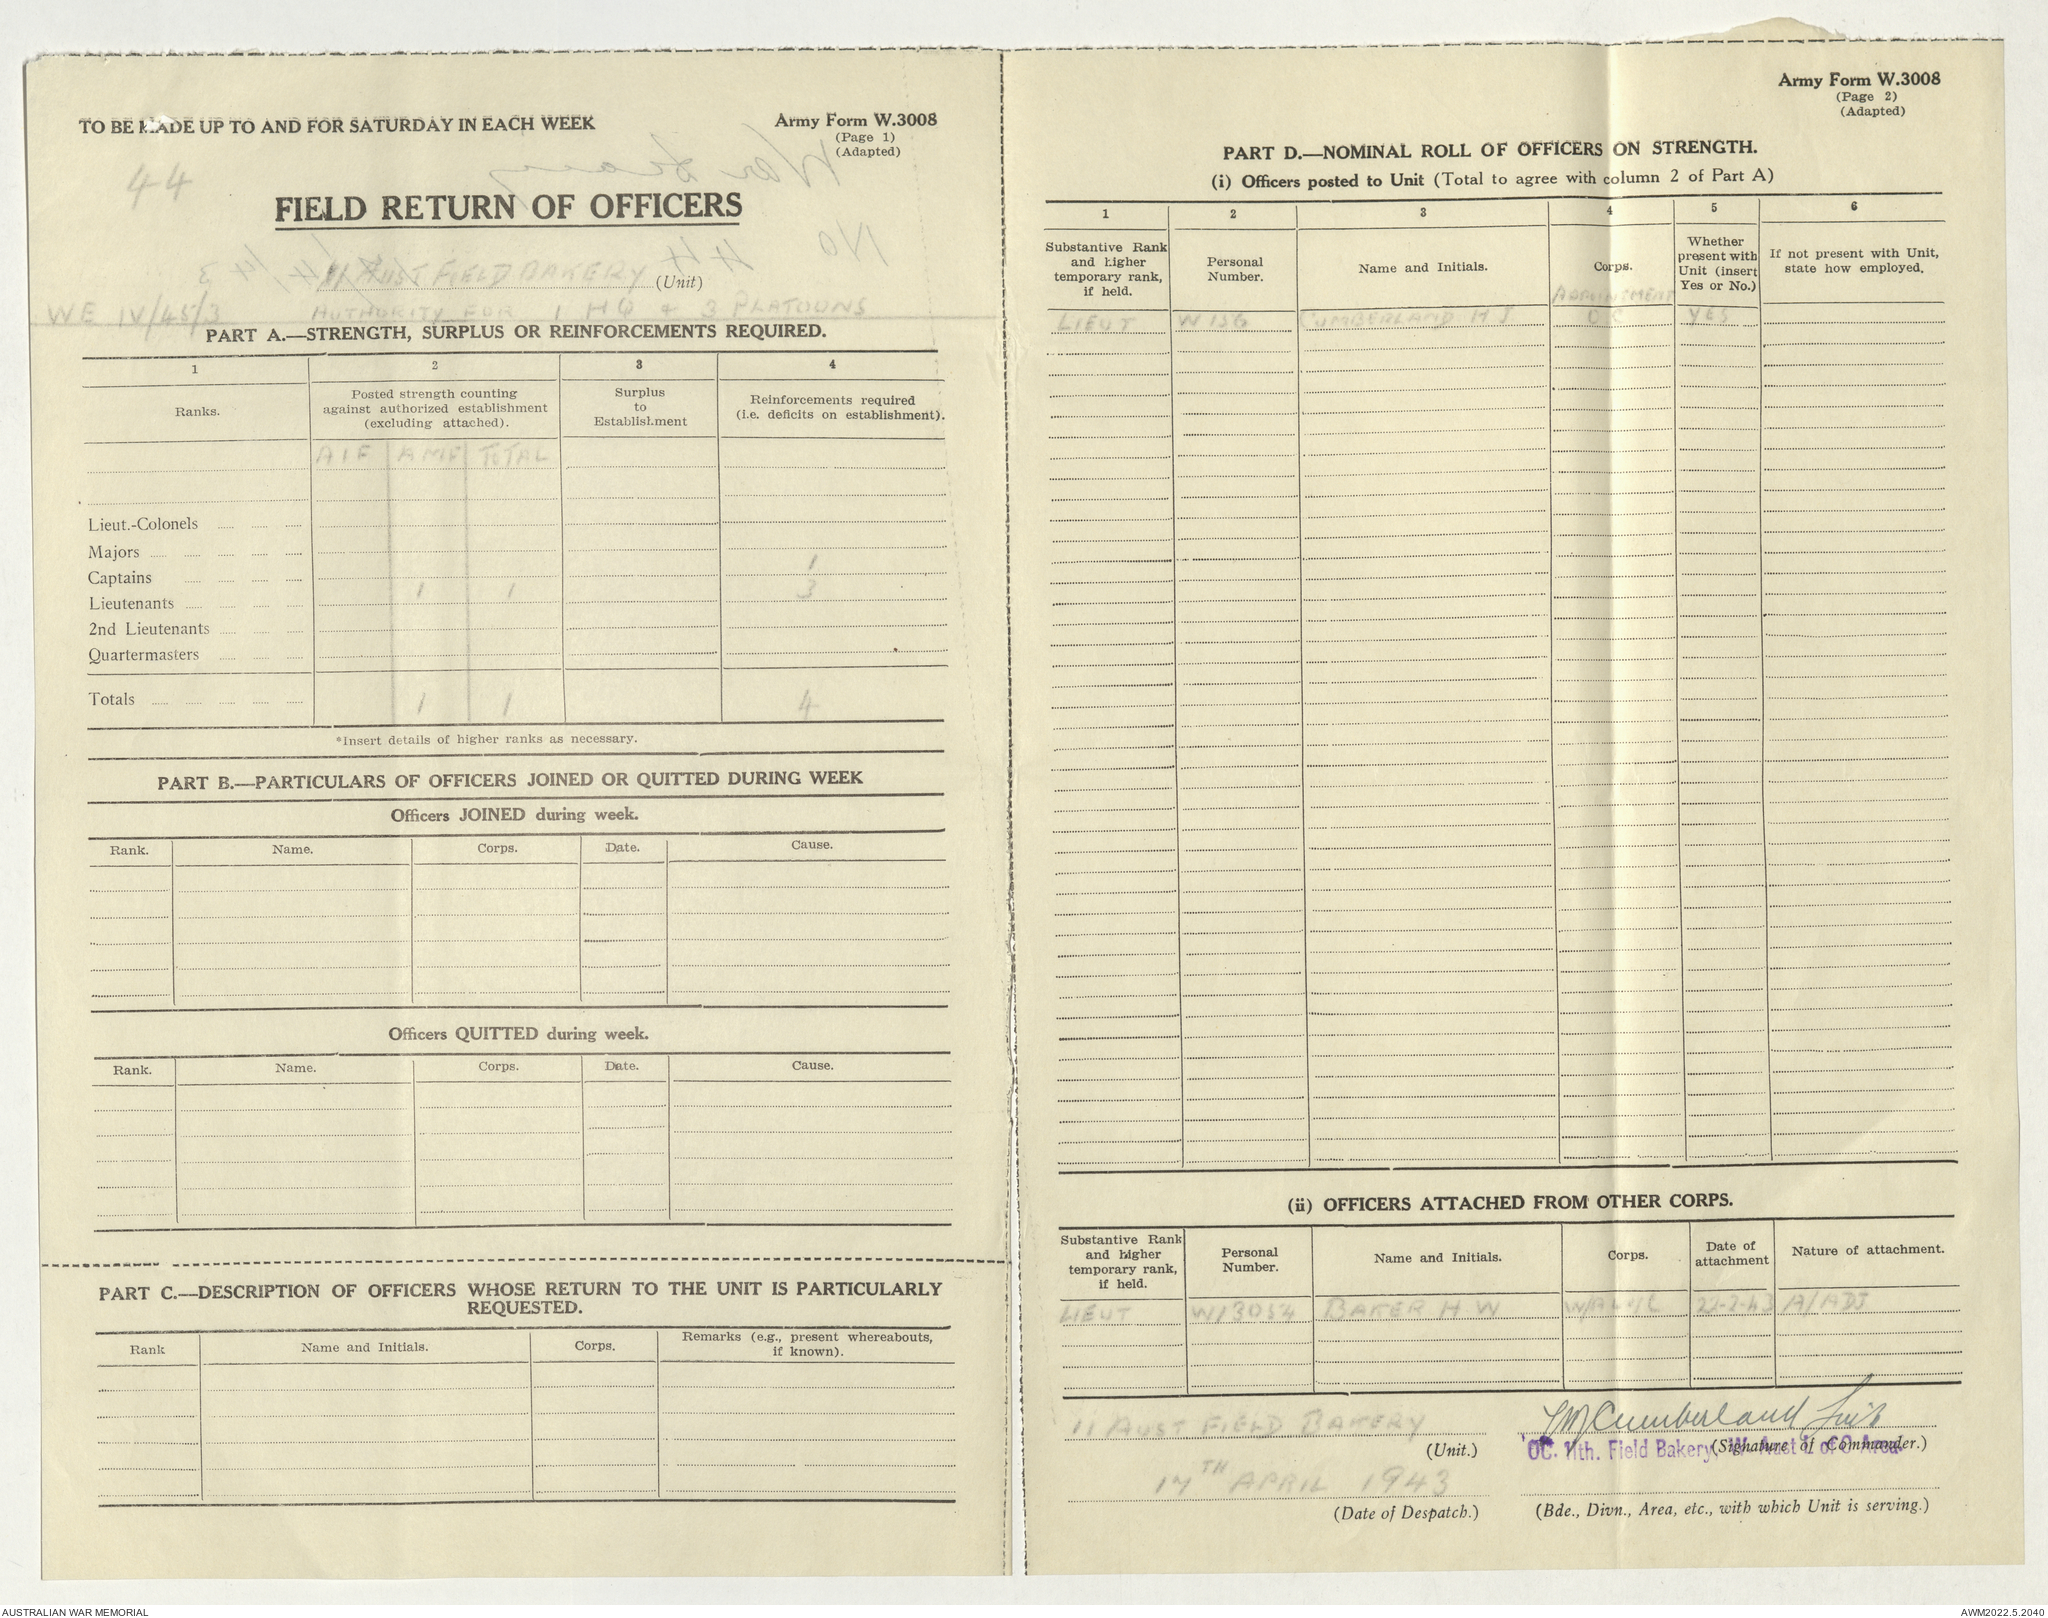 TO BE MADE UP TO AND FOR SATURDAY IN EACH WEEK
Army Form W.3008
(Page 1)
(Adapted)
44
FIELD RETURN OF OFFICERS
11 AUST FIELD BAKERY (Unit)
WE IV/45/3 AUTHORITY FOR 1 HQ & 3 PLATOONS
PART A.—STRENGTH, SURPLUS OR REINFORCEMENTS REQUIRED.
1 2 3 4
Ranks.
Posted strength counting against authorized establishment (excluding attached).
Surplus to Establishment
Reinforcements required (i.e. deficits on establishment).
AIF AMF TOTAL
Lieut.-Colonels
Majors
Captains 1
Lieutenants 1 1 3
2nd Lieutenants
Quartermasters
Totals 1 1 4
*Insert details of higher ranks as necessary.
PART B.—PARTICULARS OF OFFICERS JOINED OR QUITTED DURING WEEK
Officers JOINED during week.
Rank. Name. Corps. Date. Cause.
Officers QUITTED during week.
Rank. Name. Corps. Date. Cause.
PART C.—DESCRIPTION OF OFFICERS WHOSE RETURN TO THE UNIT IS PARTICULARLY
REQUESTED.
Rank Name and Initials. Corps. Remarks (e.g., present whereabouts, if known).
Army Form W.3008
(Page 2)
(Adapted)
PART D.—NOMINAL ROLL OF OFFICERS ON STRENGTH.
(i) Officers posted to Unit (Total to agree with column 2 of Part A)
1 2 3 4 5 6
Substantive Rank and higher temporary rank, if held.
Personal Number.
Name and Initials.
Corps.
APPOINTMENT
Whether present with Unit (insert Yes or No.)
If not present with Unit, state how employed.
LIEUT W156 CUMBERLAND H J OC YES
(ii) OFFICERS ATTACHED FROM OTHER CORPS.
Substantive Rank and higher temporary rank, if held.
Personal Number.
Name and Initials.
Corps.
Date of attachment
Nature of attachment.
LIEUT W13054 BAKER H W 22-2-43 A/ADJ
11 AUST FIELD BAKERY
(Unit.)
Cumberland Lieut
(Signature of Commander.)
OC. 11th. Field Bakery, W Aust L of C Area
17TH APRIL 1943
(Date of Despatch.)
(Bde., Divn., Area, etc., with which Unit is serving.)
AUSTRALIAN WAR MEMORIAL
AWM2022.5.2040